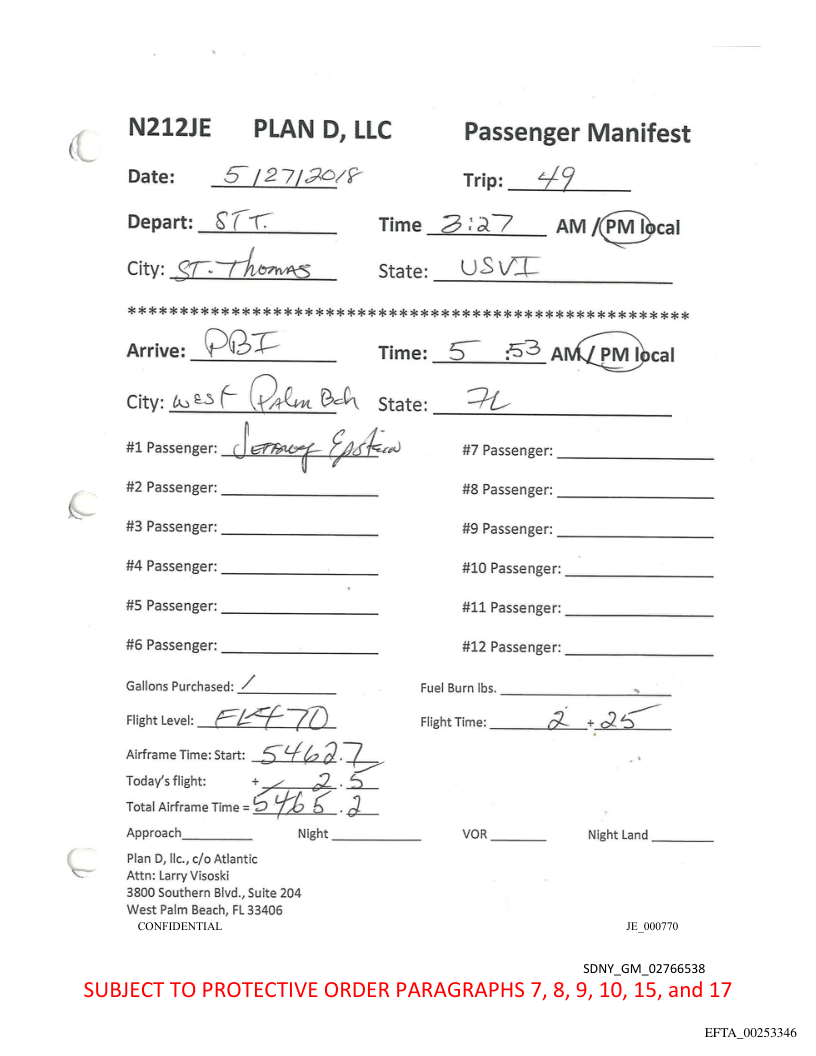 N212JE PLAN D, LLC Passenger Manifest
Date: 5/27/2018 Trip: 49
Depart: STT. Time 3:27 AM / PM local
City: ST. Thomas State: USVI
********************************************************
Arrive: PBI Time: 5 :53 AM / PM local
City: West Palm Bch State: FL
#1 Passenger: Jeffrey Epstein #7 Passenger:
#2 Passenger: #8 Passenger:
#3 Passenger: #9 Passenger:
#4 Passenger: #10 Passenger:
#5 Passenger: #11 Passenger:
#6 Passenger: #12 Passenger:
Gallons Purchased: / Fuel Burn lbs.
Flight Level: FL470 Flight Time: 2 + 25
Airframe Time: Start: 5462.7
Today's flight: + 2.5
Total Airframe Time = 5465.2
Approach Night VOR Night Land
Plan D, llc., c/o Atlantic
Attn: Larry Visoski
3800 Southern Blvd., Suite 204
West Palm Beach, FL 33406
CONFIDENTIAL JE_000770
SDNY_GM_02766538
SUBJECT TO PROTECTIVE ORDER PARAGRAPHS 7, 8, 9, 10, 15, and 17
EFTA_00253346